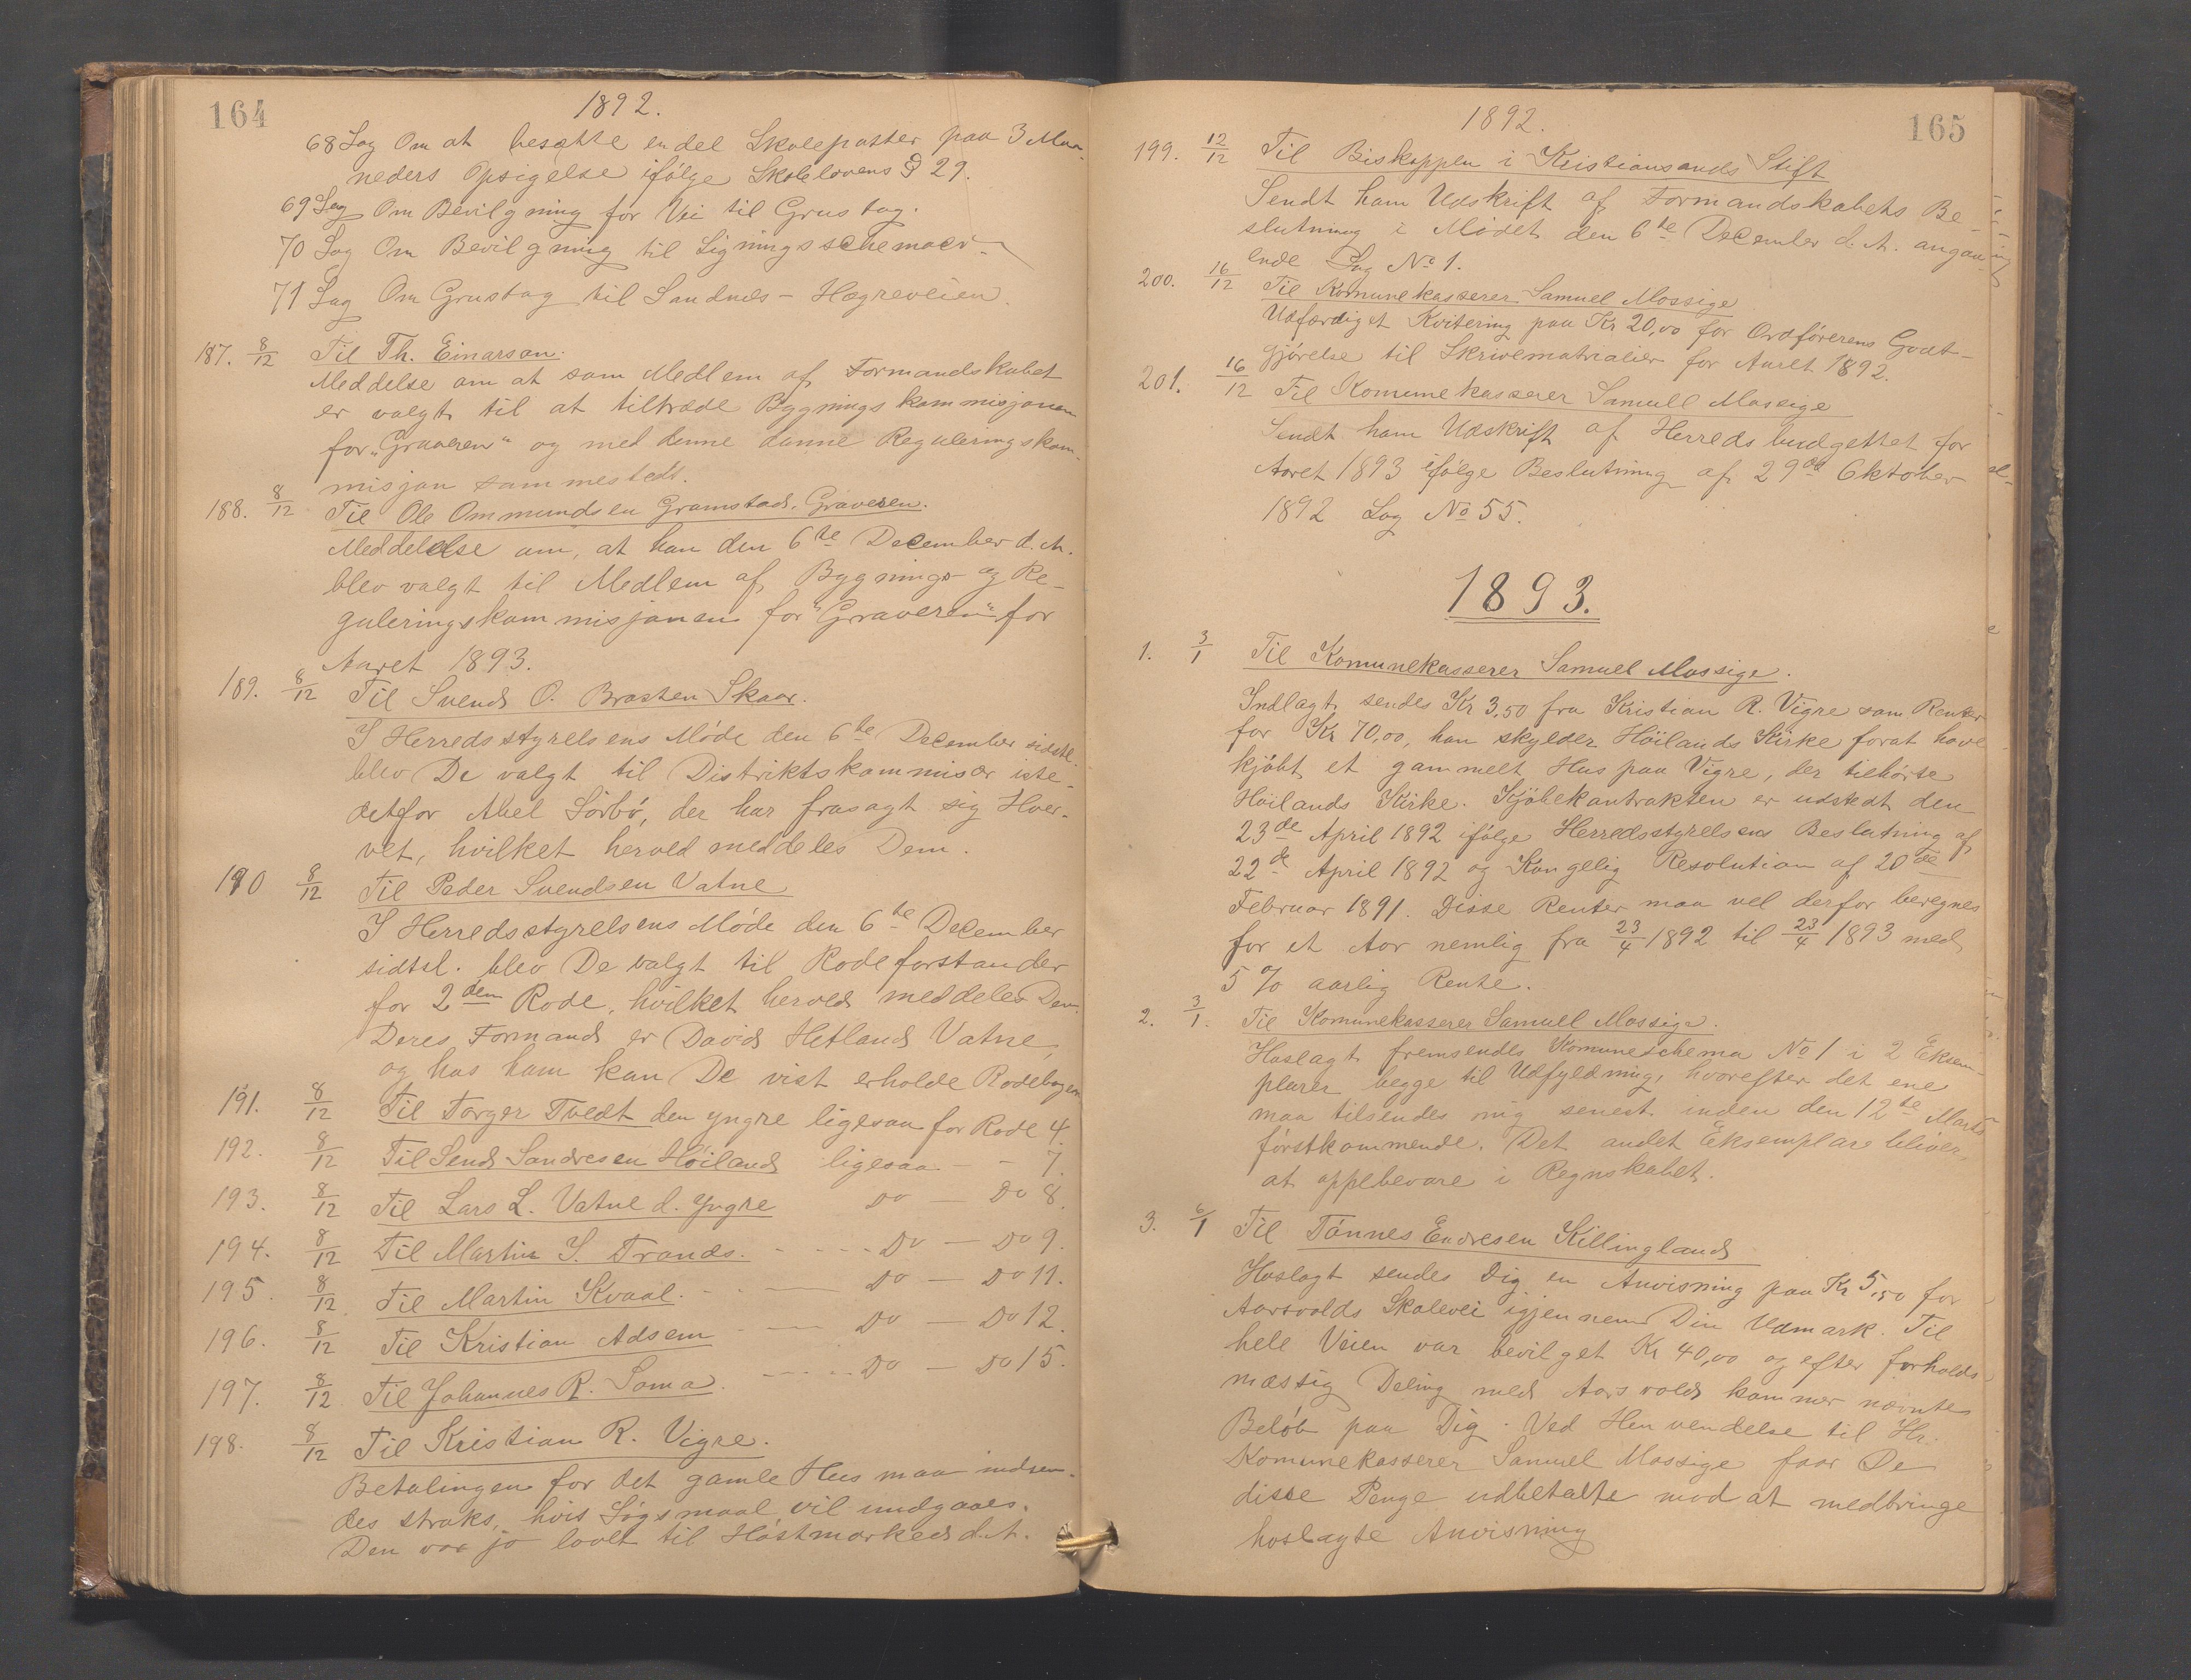 164
1892.
68 Sag Om at besætte en del Skoleposter paa 3 Maa-
neders Opsigelse ifølge Skolelovens § 29.
69 Sag Om Bevilgning for Vei til Grustag.
70 Sag Om Bevilgning til Ligningsschemaer.
71 Sag Om Grustag til Sandnes - Hogreveien.
187. 8/12 Til Th. Einarson.
Meddelse om at som Medlem af Formandskabet
er valgt til at tiltræde Bygningskommisjonen
for „Graveren“ og med denne danne Reguleringskom-
misjon sammesteds.
188. 8/12 Til Ole Ommundsen Gramstad, Graveren.
Meddelelse om, at han den 6te December d. A.
blev valgt til Medlem af Bygnings- og Re-
guleringskommisjonen for „Graveren“ for
Aaret 1893.
189. 8/12 Til Svend O. Brasten Skaar.
I Herredsstyrelsens Møde den 6te December sidstl.
blev De valgt til Distriktskommisær iste-
detfor Abel Sørbø, der har frasagt sig Hver-
vet, hvilket herved meddeles Dem.
190 8/12 Til Peder Svendsen Vatne
I Herredsstyrelsens Møde den 6te December
sidstl. blev De valgt til Rodeforstander
for 2den Rode, hvilket herved meddeles Dem.
Deres Formand er David Hetland Vatne,
og hos ham kan De vist erholde Rodebogen
191. 8/12 Til Torger Tvedt den yngre ligesaa for Rode 4.
192. 8/12 Til Send Sandresen Høiland ligesaa - - 7.
193. 8/12 Til Lars L. Vatne d. Yngre Do - Do 8.
194. 8/12 Til Martin I. Trones. - - - - Do - Do 9.
195. 8/12 Til Martin Kvaal. - - Do - Do 11.
196. 8/12 Til Kristian Adsem - - Do - Do 12.
197. 8/12 Til Johannes R. Soma. - - - - Do - Do 15.
198. 8/12 Til Kristian R. Vigre.
Betalingen for det gamle Hus maa indsen-
des straks, hvis Søgsmaal vil undgaaes.
Den var jo lovet til Høstmarked d. A.
165
1892.
199. 12/12 Til Biskoppen i Kristiansands Stift
Sendt ham Udskrift af Formandskabets Be-
slutning i Mødet den 6te December d. A. angaa-
ende Sag No 1.
200. 16/12 Til Komunekasserer Samuel Mossige
Udfærdiget Kvitering paa Kr 20,00 for Ordførerens Godt-
gjørelse til Skrivematrialier for Aaret 1892.
201. 16/12 Til Komunekasserer Samuel Mossige
Sendt ham Udskrift af Herredsbudgettet for
Aaret 1893 ifølge Beslutning af 29de Oktober
1892 Sag No 55.
1893.
1. 3/1 Til Komunekasserer Samuel Mossige.
Indlagt sendes Kr 3,50 fra Kristian R. Vigre som Renter
for Kr 70,00, han skylder Høilands Kirke forat have
kjøbt et gammelt Hus paa Vigre, der tilhørte
Høilands Kirke. Kjøbekontrakten er udstedt den
23de April 1892 ifølge Herredsstyrelsens Beslutning af
22de April 1892 og Kongelig Resolution af 20de
Februar 1891. Disse Renter maa vel derfor beregnes
for et Aar nemlig fra 23/4 1892 til 23/4 1893 med
5 % aarlig Rente.
2. 3/1. Til Komunekasserer Samuel Mossige.
Hoslagt fremsendes Komuneschema No 1 i 2 Eksem-
plarer begge til Udfyldning, hvorefter det ene
maa tilsendes mig senest inden den 12te Marts
førstkommende. Det andet Eksemplar bliver
at oppebevare i Regnskabet.
3. 6/1 Til Tønnes Endresen Killingland
Hoslagt sendes Dig en Anvisning paa Kr 5,50 for
Aarsvolds Skolevei igjennem Din Udmark. Til
hele Veien var bevilget Kr 40,00 og efter forholds-
mæssig Deling med Aarsvold kommer nævnte
Beløb paa Dig. Ved Henvendelse til Hr.
Komunekasserer Samuel Mossige faar De
disse Penge udbetalte mod at medbringe
hoslagte Anvisning